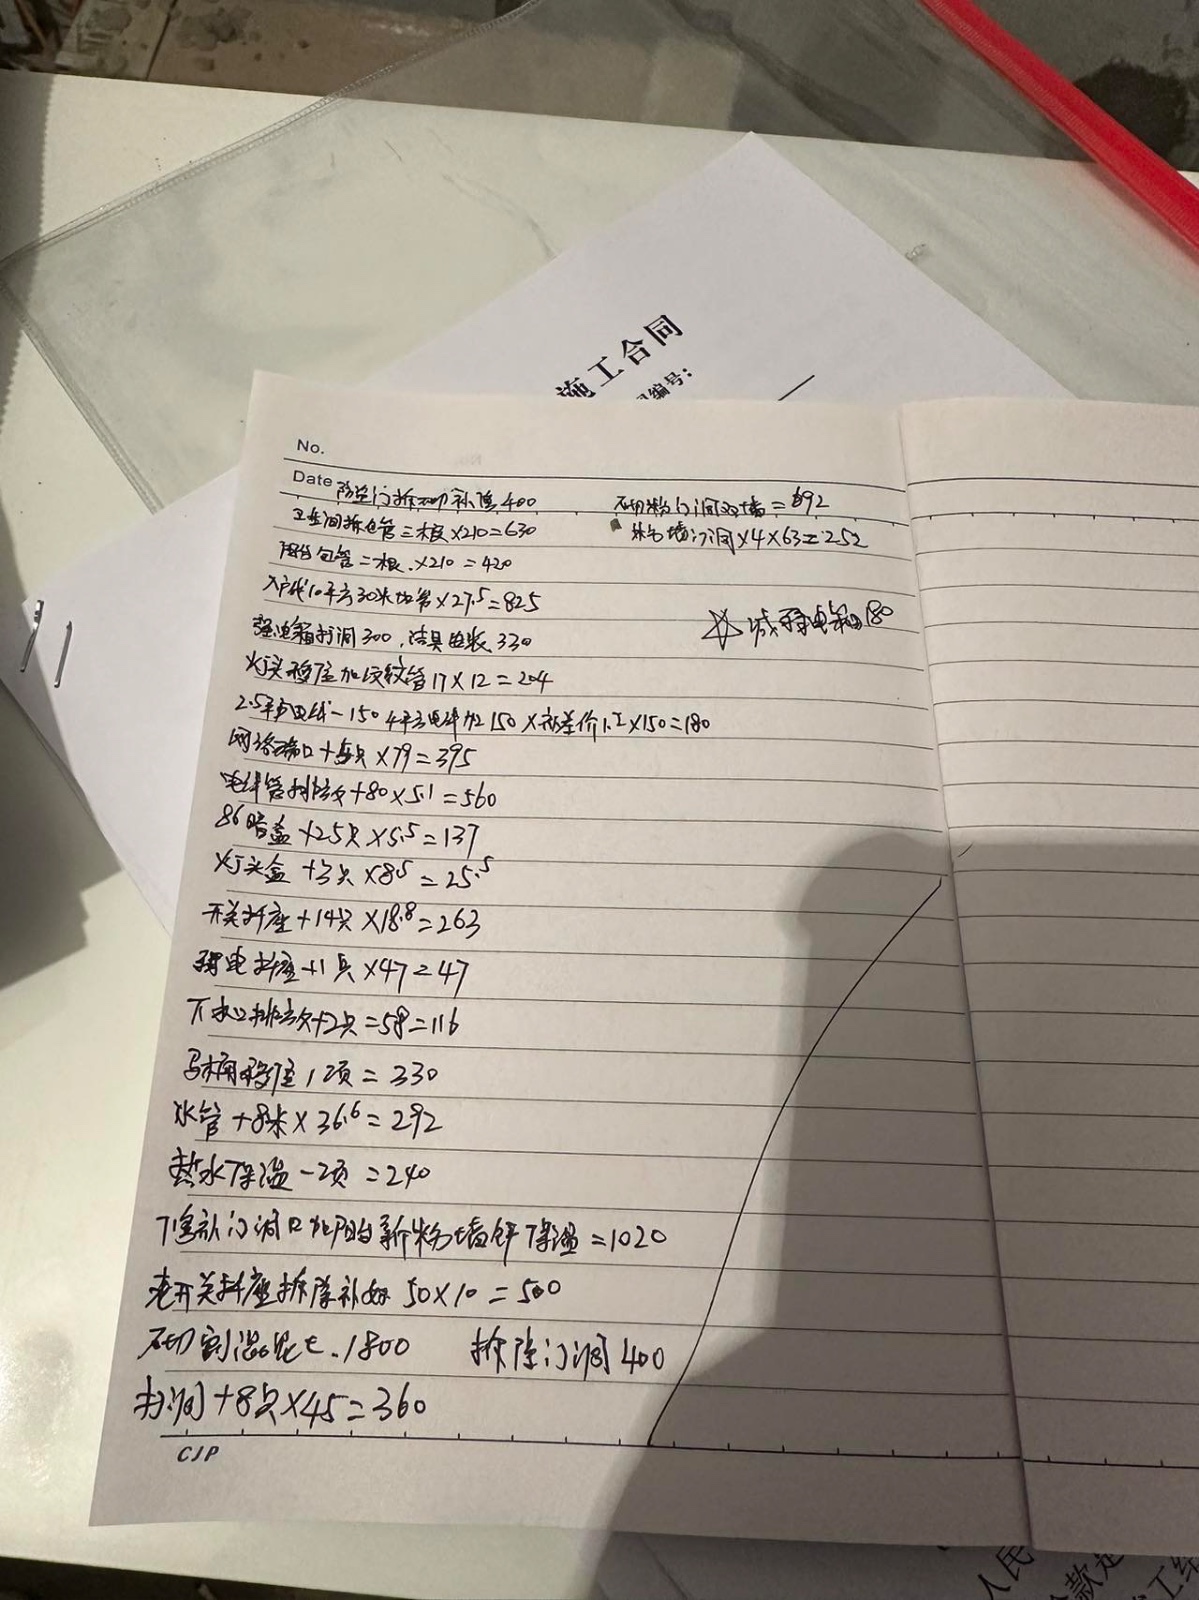 施工合同
编号：
No.
Date 防盗门拆砌补渣400
砌粉门洞双墙=692
卫生间拆包管三根×210=630
粉墙门洞×4×63=252
阳台包管二根.×210=420
入户线10平方30米加管×27.5=825
☆减强电箱180
强电箱打洞300.洁具安装330
灯头移位加波纹管17×12=204
2.5平方电线-150 4平方电线加150×补差价1.2×150=180
网络端口+5只×79=395
电线管排放+80×5.1=560
86暗盒+25只×5.5=137
灯头盒+3只×8.5=25.5
开关插座+14只×18.8=263
弱电插座+1只×47=47
下水口排放+2只=58=116
马桶移位1项=330
水管+8米×36.6=292
热水保温一项=240
修补门洞口北阳台新粉墙铲保温=1020
老开关插座拆除补好50×10=500
切割混凝土.1800 拆除门洞400
打洞+8只×45=360
CJP
人民
款是
工结